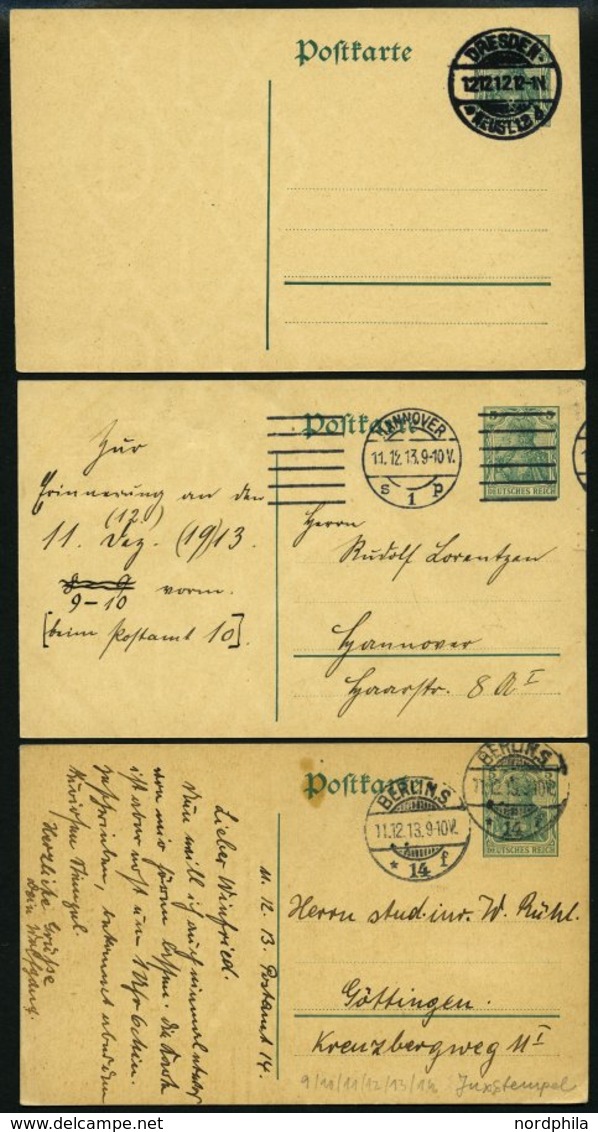 Postkarte
DRESDEN-
12.12.12.12-1N.
*NEUST.12d
Postkarte
HANNOVER
11.12.13.9-10V.
s 1 p
5 5
DEUTSCHES REICH
Zur
Erinnerung an den
(12.)
11. Dez. (19)13.
8-9
9-10 vorm.
[beim Postamt 10].
Herrn
Rudolf Lorentzen
Hannover
Haarstr. 8 A I
Postkarte
BERLIN.S
11.12.13.9-10V.
* 14 f
BERLIN.S
11.12.13.9-10V.
* 14 f
DEUTSCHES REICH
11. 12. 13 Postamt 14.
Lieber Winfried.
Nun will ich auch einmal
von mir hören lassen. Die Karte
ist aber erst um
geschrieben, bekommst aber den
kuriosen Stempel.
Herzliche Grüße
Dein Wolfgang.
Herrn stud. iur. W. Rühl.
Göttingen.
Kreuzbergweg 11 I
9/10/11/12/13/14 Juxstempel
www.delcampe.net
nordphila